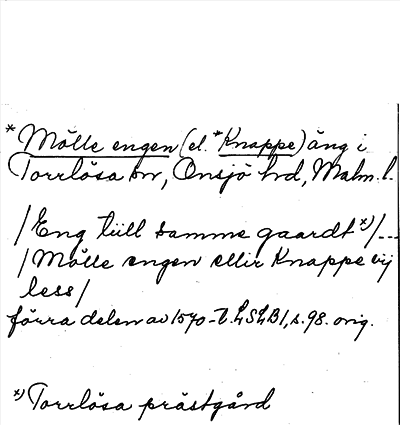 *Mölle engen (el. *Knappe) äng i
Torrlösa sn, Onsjö hd, Malm. l.
/Eng tiill samme gaardt x)/---
/Mölle engen ellir Knappe vij
less/
förra delen av 1570-t. LSLB1, s. 98. orig.
x) Torrlösa prästgård